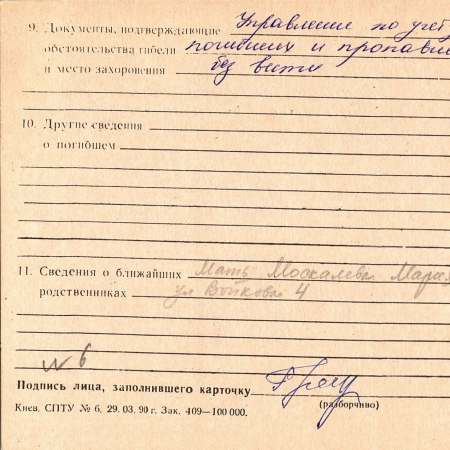 9. Документы, подтверждающие Управление по учёт
обстоятельства гибели погибших и пропавш
и место захоронения без вести
10. Другие сведения
о погибшем
11. Сведения о ближайших Мать Москалева Мария
родственниках ул Войкова 4
№ 6
Подпись лица, заполнившего карточку
(разборчиво)
Киев. СПТУ № 6. 29. 03. 90 г. Зак. 409—100 000.